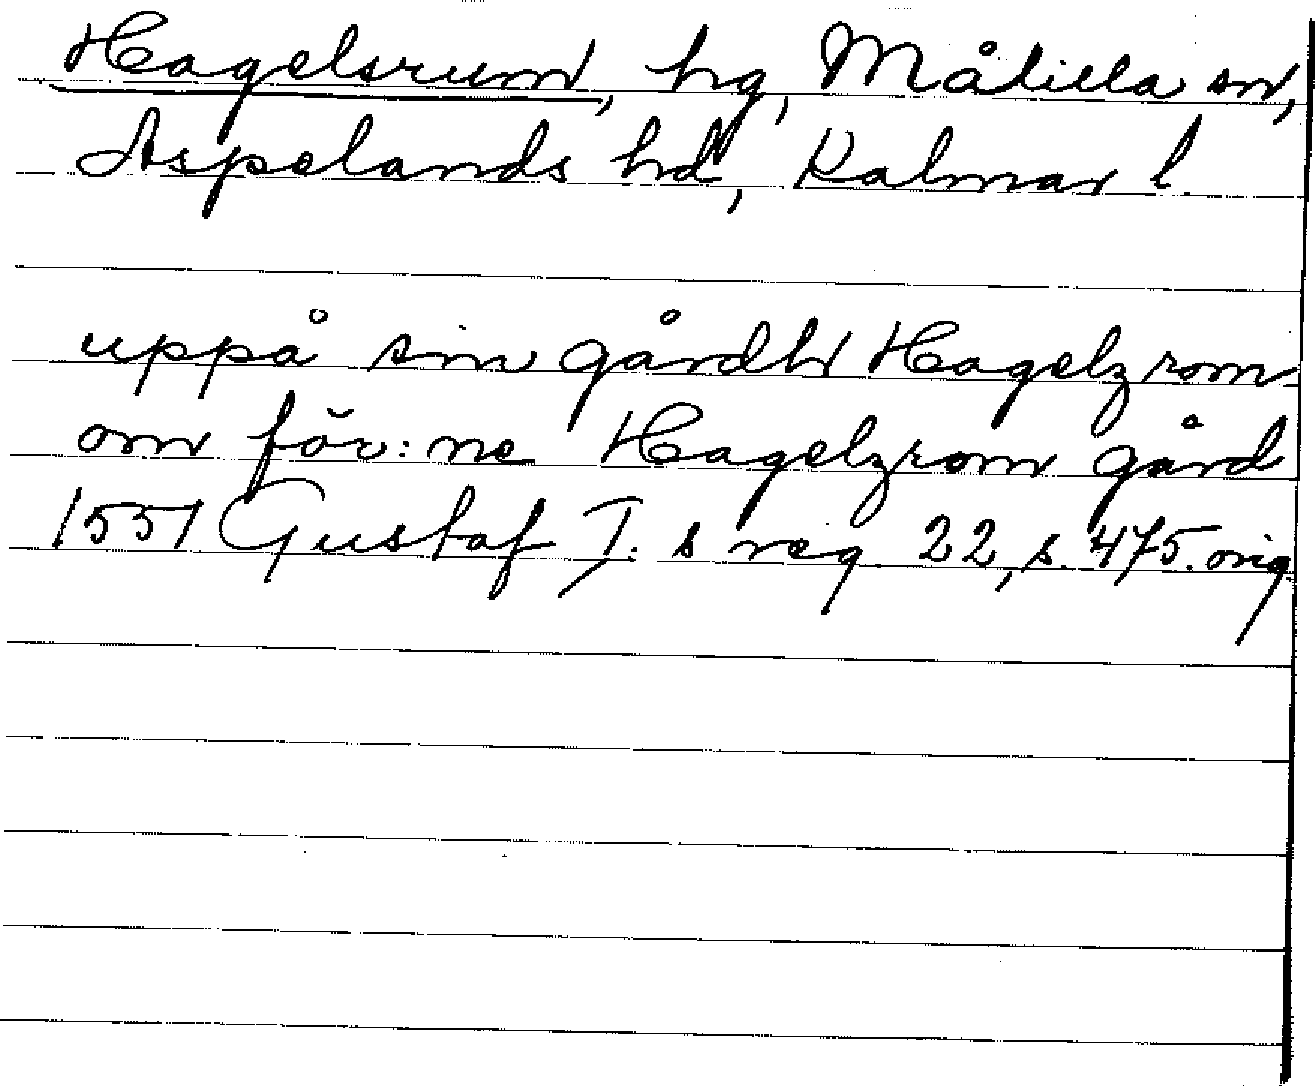 Hagelsrum, hg, Målilla sn,
Aspelands hd, Kalmar l.
uppå sin gårdh Hagelzrom
om för:ne Hagelzrom gård
1551 Gustaf I:s reg 22, s. 475. orig